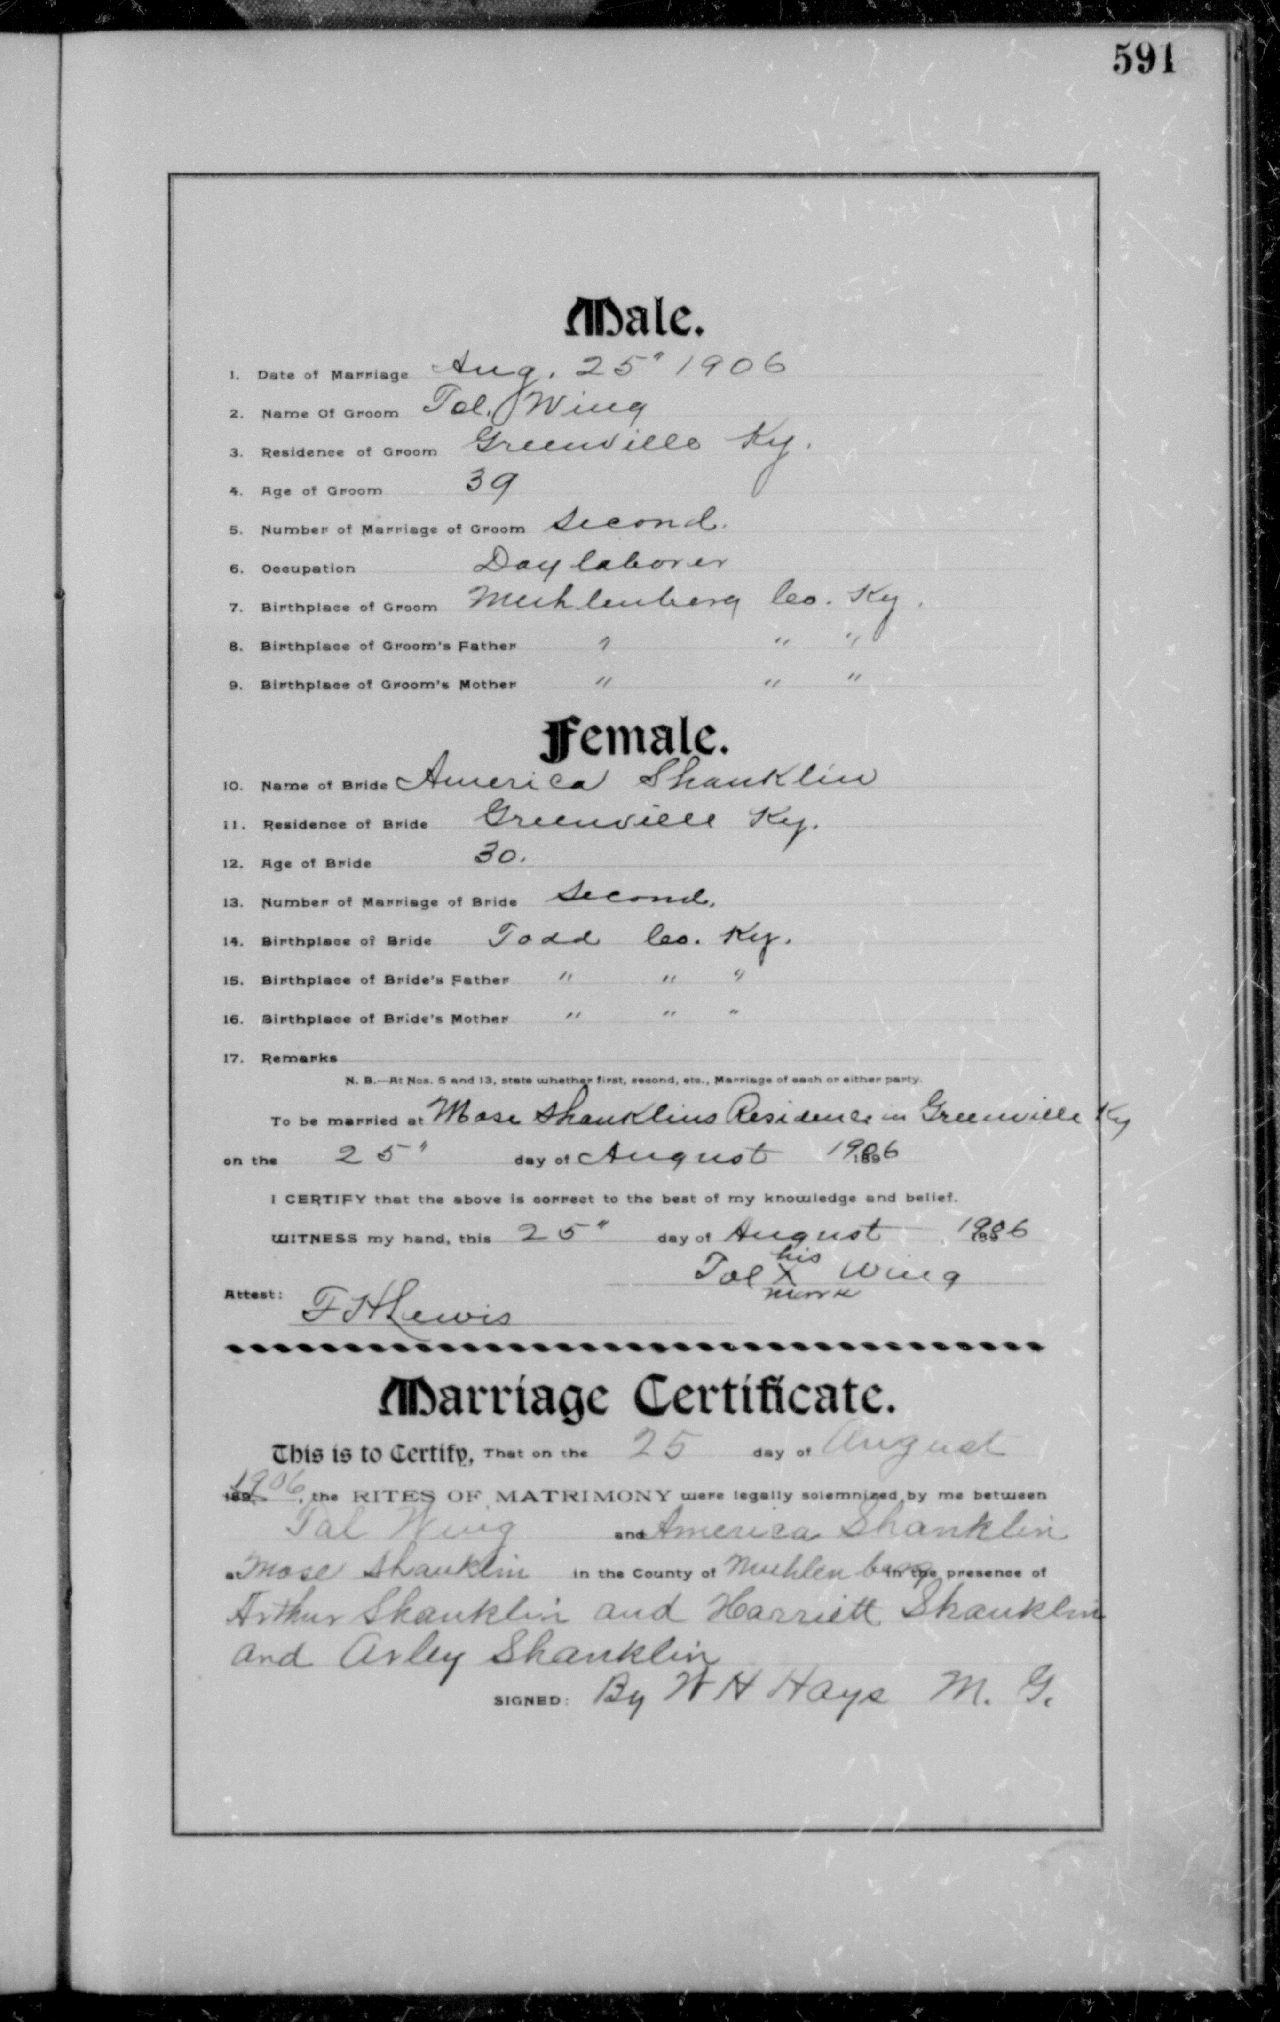 591
Male.
1. Date of Marriage Aug. 25" 1906
2. Name Of Groom Tol. Wing
3. Residence of Groom Greenville Ky.
4. Age of Groom 39
5. Number of Marriage of Groom Second.
6. Occupation Day laborer
7. Birthplace of Groom Muhlenberg Co. Ky.
8. Birthplace of Groom's Father " " "
9. Birthplace of Groom's Mother " " "
Female.
10. Name of Bride America Shanklin
11. Residence of Bride Greenville Ky.
12. Age of Bride 30.
13. Number of Marriage of Bride Second.
14. Birthplace of Bride Todd Co. Ky.
15. Birthplace of Bride's Father " " "
16. Birthplace of Bride's Mother " " "
17. Remarks
N. B.—At Nos. 5 and 13, state whether first, second, etc., Marriage of each or either party.
To be married at Mose Shanklins Residence in Greenville Ky
on the 25" day of August 1906
I CERTIFY that the above is correct to the best of my knowledge and belief.
WITNESS my hand, this 25" day of August 1906
his
Tol X Wing
mark
Attest: F H Lewis
Marriage Certificate.
This is to Certify, That on the 25 day of August
1906, the RITES OF MATRIMONY were legally solemnized by me between
Tal Wing and America Shanklin
at Mose Shanklin in the County of Muhlenberg in the presence of
Arthur Shanklin and Harriett Shanklin
and Arley Shanklin
SIGNED: By W H Hays M. G.